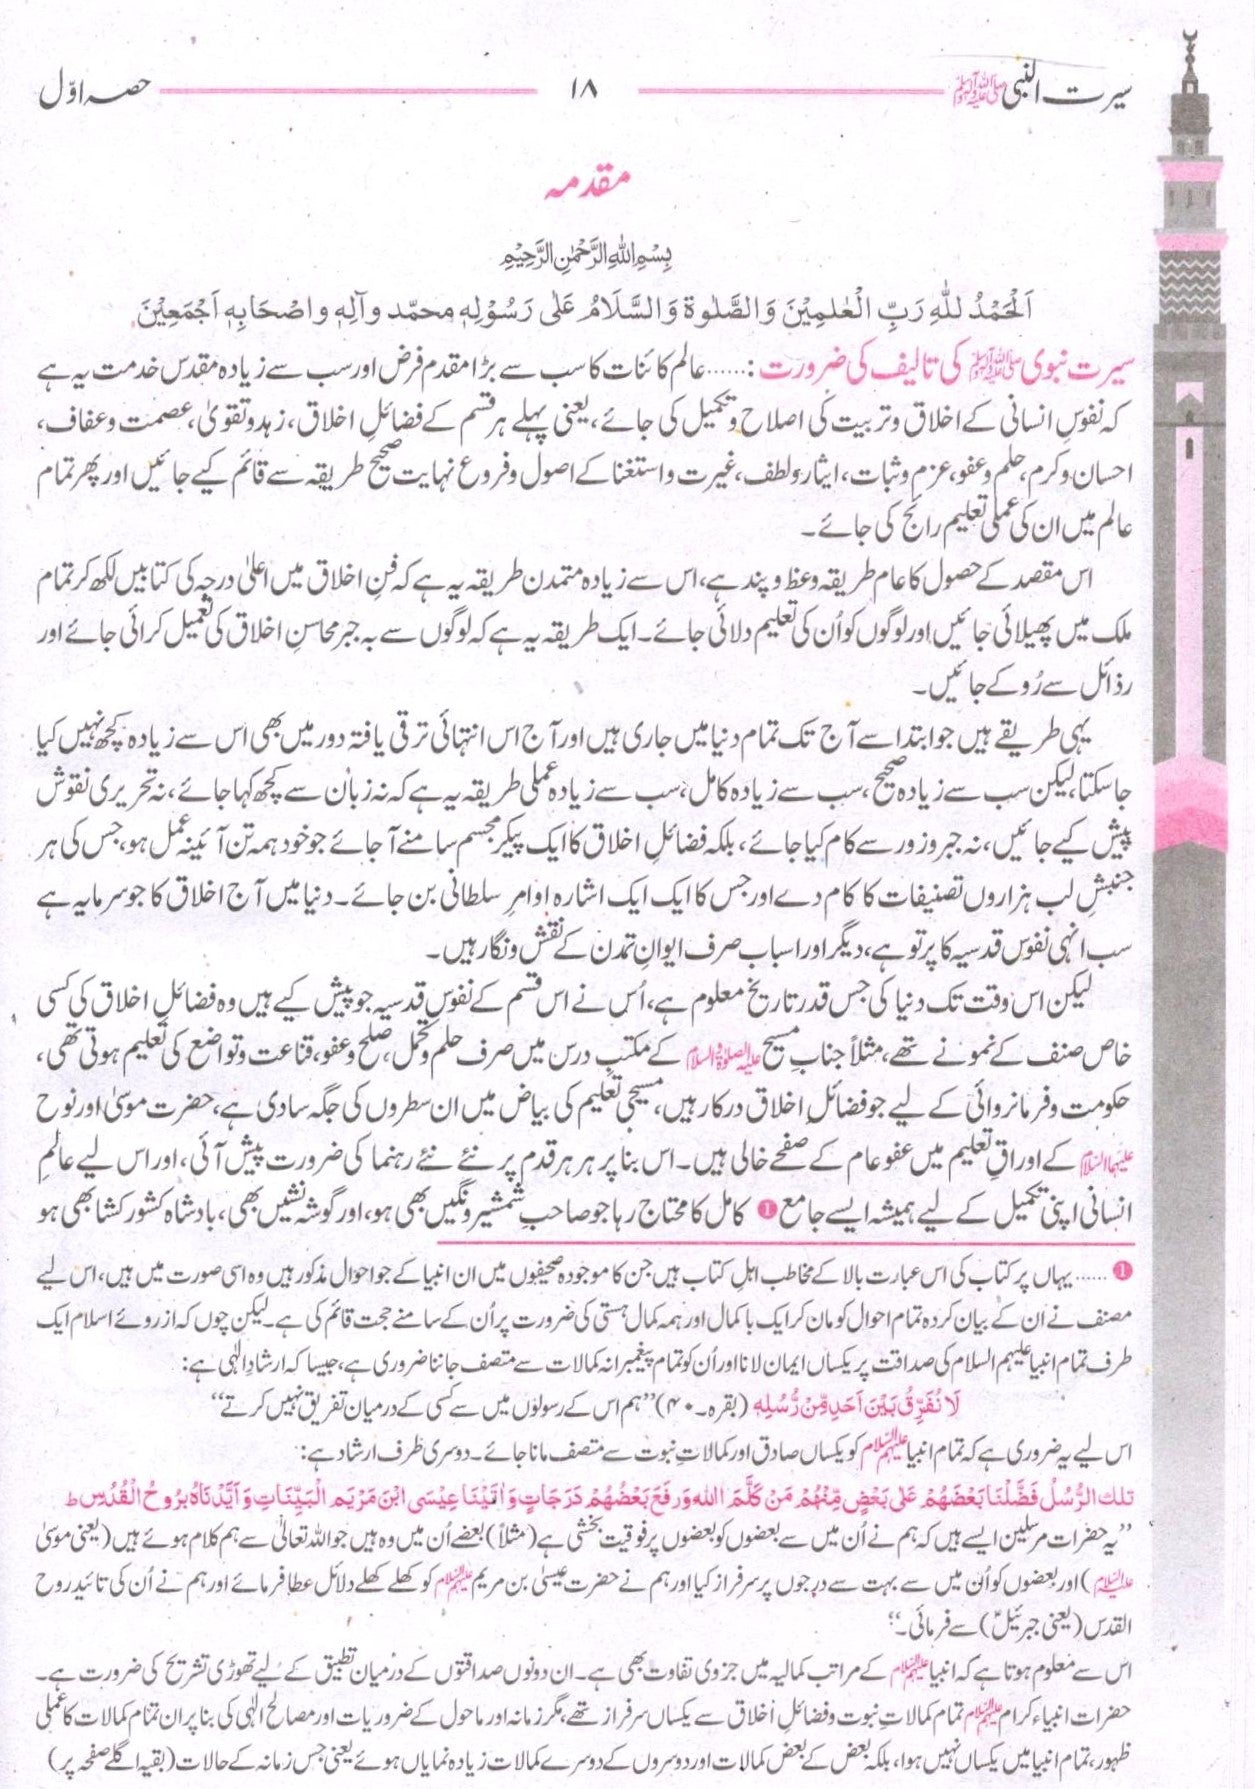 سیرت النبی ﷺ ۱۸ حصہ اوّل
مقدمہ
بِسْمِ اللہِ الرَّحْمٰنِ الرَّحِیْمِ
اَلْحَمْدُ لِلّٰہِ رَبِّ الْعٰلَمِیْنَ وَالصَّلٰوۃ وَالسَّلَامُ عَلٰی رَسُوْلِہٖ محمّد وآلِہٖ واصْحَابِہٖ اَجْمَعِیْنَ
سیرت نبوی ﷺ کی تالیف کی ضرورت :...... عالم کائنات کا سب سے بڑا مقدم فرض اور سب سے زیادہ مقدس خدمت یہ ہے
کہ نفوسِ انسانی کے اخلاق و تربیت کی اصلاح و تکمیل کی جائے، یعنی پہلے ہر قسم کے فضائلِ اخلاق، زہد و تقویٰ، عصمت و عفاف،
احسان و کرم، حلم و عفو، عزم و ثبات، ایثار و لطف، غیرت و استغنا کے اصول و فروع نہایت صحیح طریقہ سے قائم کیے جائیں اور پھر تمام
عالم میں ان کی عملی تعلیم رائج کی جائے۔
اس مقصد کے حصول کا عام طریقہ وعظ و پند ہے، اس سے زیادہ متمدن طریقہ یہ ہے کہ فنِ اخلاق میں اعلیٰ درجہ کی کتابیں لکھ کر تمام
ملک میں پھیلائی جائیں اور لوگوں کو اُن کی تعلیم دلائی جائے۔ ایک طریقہ یہ ہے کہ لوگوں سے بہ جبر محاسنِ اخلاق کی تعمیل کرائی جائے اور
رذائل سے رُوکے جائیں۔
یہی طریقے ہیں جو ابتدا سے آج تک تمام دنیا میں جاری ہیں اور آج اس انتہائی ترقی یافتہ دور میں بھی اس سے زیادہ کچھ نہیں کیا
جاسکتا، لیکن سب سے زیادہ صحیح، سب سے زیادہ کامل، سب سے زیادہ عملی طریقہ یہ ہے کہ نہ زبان سے کچھ کہا جائے، نہ تحریری نقوش
پیش کیے جائیں، نہ جبر و زور سے کام کیا جائے، بلکہ فضائلِ اخلاق کا ایک پیکر مجسم سامنے آجائے جو خود ہمہ تن آئینہ عمل ہو، جس کی ہر
جنبشِ لب ہزاروں تصنیفات کا کام دے اور جس کا ایک ایک اشارہ اوامرِ سلطانی بن جائے۔ دنیا میں آج اخلاق کا جو سرمایہ ہے
سب انہی نفوس قدسیہ کا پرتو ہے، دیگر اور اسباب صرف ایوانِ تمدن کے نقش و نگار ہیں۔
لیکن اس وقت تک دنیا کی جس قدر تاریخ معلوم ہے، اُس نے اس قسم کے نفوسِ قدسیہ جو پیش کیے ہیں وہ فضائلِ اخلاق کی کسی
خاص صنف کے نمونے تھے، مثلاً جنابِ مسیح علیہ الصلوٰۃ والسلام کے مکتبِ درس میں صرف حلم و تحمل، صلح و عفو، قناعت و تواضع کی تعلیم ہوتی تھی،
حکومت و فرمانروائی کے لیے جو فضائلِ اخلاق درکار ہیں، مسیحی تعلیم کی بیاض میں ان سطروں کی جگہ سادی ہے، حضرت موسیٰ اور نوح
علیہما السلام کے اوراقِ تعلیم میں عفو عام کے صفحے خالی ہیں۔ اس بنا پر ہر ہر قدم پر نئے نئے رہنما کی ضرورت پیش آئی، اور اس لیے عالمِ
انسانی اپنی تکمیل کے لیے ہمیشہ ایسے جامع ❶ کامل کا محتاج رہا جو صاحبِ شمشیر و نگیں بھی ہو، اور گوشہ نشیں بھی، بادشاہ کشور کشا بھی ہو
❶ ...... یہاں پر کتاب کی اس عبارت بالا کے مخاطب اہلِ کتاب ہیں جن کا موجودہ صحیفوں میں ان انبیا کے جو احوال مذکور ہیں وہ اسی صورت میں ہیں، اس لیے
مصنف نے ان کے بیان کردہ تمام احوال کو مان کر ایک با کمال اور ہمہ کمال ہستی کی ضرورت پر اُن کے سامنے حجت قائم کی ہے۔ لیکن چوں کہ از روئے اسلام ایک
طرف تمام انبیا علیہم السلام کی صداقت پر یکساں ایمان لانا اور اُن کو تمام پیغمبرانہ کمالات سے متصف جاننا ضروری ہے، جیسا کہ ارشادِ الٰہی ہے:
لَا نُفَرِّقُ بَیْنَ اَحَدٍ مِّنْ رُّسُلِہٖ (بقرہ۔۴۰) ’’ہم اس کے رسولوں میں سے کسی کے درمیان تفریق نہیں کرتے‘‘
اس لیے یہ ضروری ہے کہ تمام انبیا علیہم السلام کو یکساں صادق اور کمالاتِ نبوت سے متصف مانا جائے۔ دوسری طرف ارشاد ہے:
تلك الرُّسُلُ فَضَّلْنَا بَعْضَهُمْ عَلٰی بَعْضٍ مِّنْهُمْ مَنْ كَلَّمَ اللّٰه وَرَفَعَ بَعْضُهُمْ دَرَجَاتٍ وَاٰتَيْنَا عِيْسَى ابْنَ مَرْيَمَ الْبَيِّنَاتِ وَاَيَّدْنَاهُ بِرُوحُ الْقُدُسِ ط
’’یہ حضرات مرسلین ایسے ہیں کہ ہم نے اُن میں سے بعضوں کو بعضوں پر فوقیت بخشی ہے (مثلاً) بعضے اُن میں وہ ہیں جو اللہ تعالیٰ سے ہم کلام ہوئے ہیں (یعنی موسیٰ
علیہ السلام) اور بعضوں کو اُن میں سے بہت سے درجوں پر سرفراز کیا اور ہم نے حضرت عیسیٰ بن مریم علیہم السلام کو کھلے کھلے دلائل عطا فرمائے اور ہم نے اُن کی تائید روح
القدس (یعنی جبرئیلؑ) سے فرمائی۔‘‘
اس سے معلوم ہوتا ہے کہ انبیا علیہم السلام کے مراتب کمالیہ میں جزوی تفاوت بھی ہے۔ ان دونوں صداقتوں کے درمیان تطبیق کے لیے تھوڑی تشریح کی ضرورت ہے۔
حضرات انبیاء کرام علیہم السلام تمام کمالاتِ نبوت و فضائلِ اخلاق سے یکساں سرفراز تھے، مگر زمانہ اور ماحول کے ضروریات اور مصالح الٰہی کی بنا پر ان تمام کمالات کا عملی
ظہور، تمام انبیا میں یکساں نہیں ہوا، بلکہ بعض کے بعض کمالات اور دوسروں کے دوسرے کمالات زیادہ نمایاں ہوئے یعنی جس زمانہ کے حالات (بقیہ اگلے صفحہ پر)